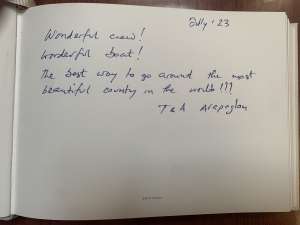 July '23
Wonderful crew!
Wonderful boat!
The best way to go around the most
beautiful country in the world!!!
T & A